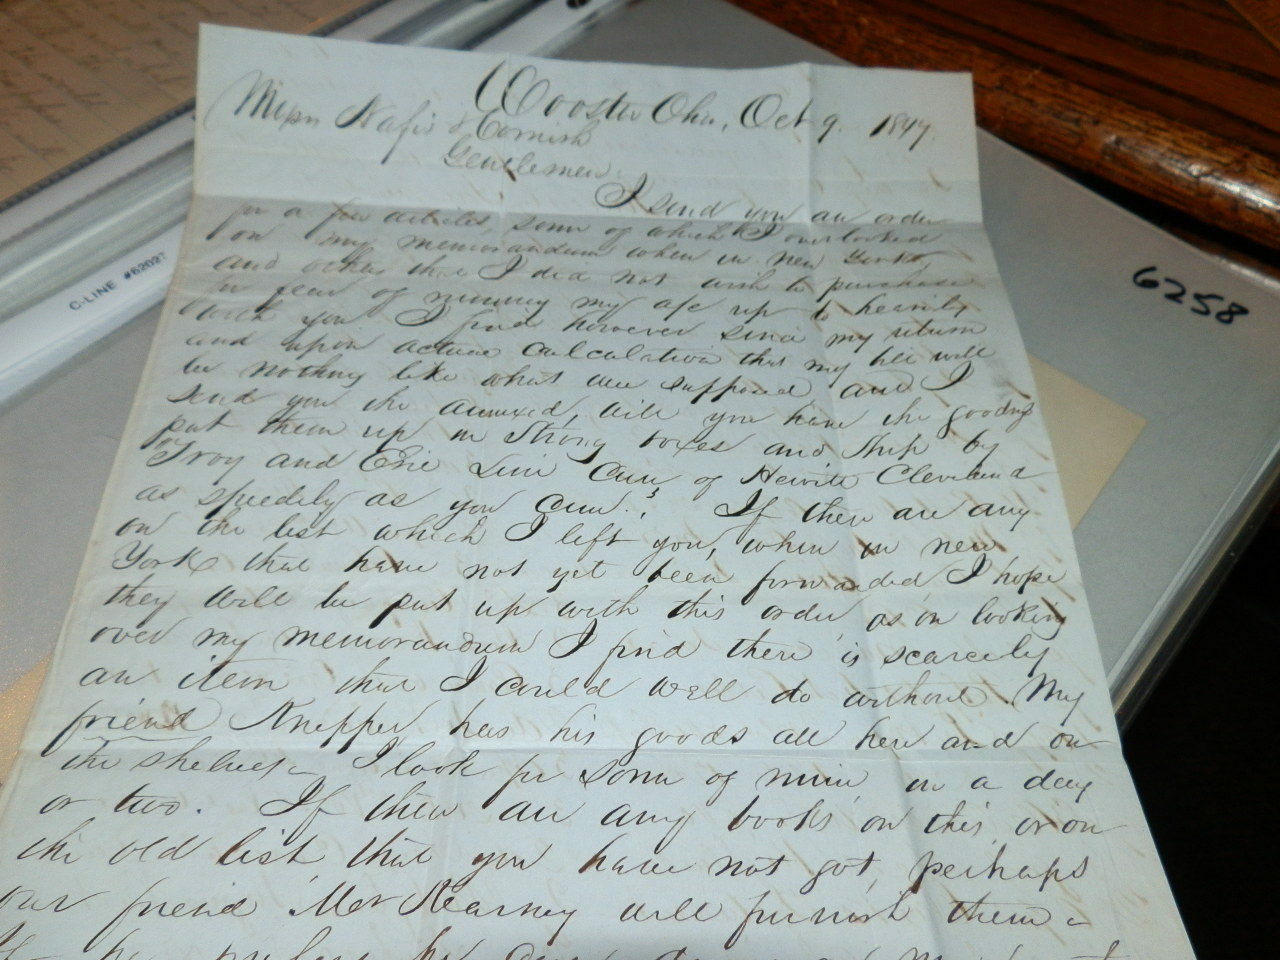 Wooster Ohio, Oct 9. 1847.
Messrs Nafis & Cornish
Gentlemen.
I send you an order
for a few articles, some of which I overlooked
on my memorandum when in New York,
and others that I did not wish to purchase
for fear of running my a/c up to heavily
with you I find however since my return
and upon actual calculation that my bill will
be nothing like what we supposed, and I
send you the annexed, will you have the goodness
put them up in Strong boxes and Ship by
Troy and Erie Line Care of Hewitt Cleveland
as speedily as you can. If there are any
on the list which I left you, when in new
York that have not yet been forwarded I hope
they will be put up with this order as on looking
over my memorandum I find there is scarcely
an item that I could well do without My
friend Knepper has his goods all here and on
the shelves - I look for some of mine in a day
or two. If there are any books on this, or on
the old list, that you have not got, perhaps
our friend Mr Kearney will furnish them -
If he
6258
C-LINE #62027